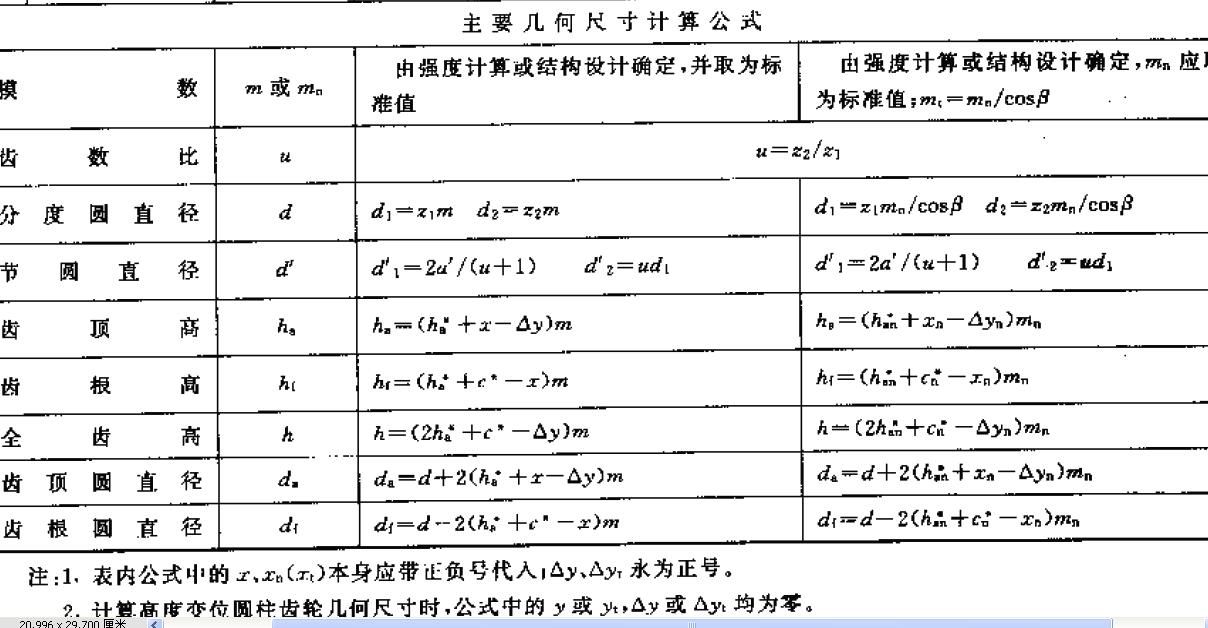 主要几何尺寸计算公式
模数 m 或 mₙ 由强度计算或结构设计确定,并取为标准值 由强度计算或结构设计确定,mₙ 应取为标准值;mₜ=mₙ/cosβ
齿数比 u u=z₂/z₁
分度圆直径 d d₁=z₁m d₂=z₂m d₁=z₁mₙ/cosβ d₂=z₂mₙ/cosβ
节圆直径 d′ d′₁=2a′/(u+1) d′₂=ud₁ d′₁=2a′/(u+1) d′₂=ud₁
齿顶高 hₐ hₐ=(hₐ*+x-Δy)m hₐ=(hₐₙ*+xₙ-Δyₙ)mₙ
齿根高 h_f h_f=(hₐ*+c*-x)m h_f=(hₐₙ*+cₙ*-xₙ)mₙ
全齿高 h h=(2hₐ*+c*-Δy)m h=(2hₐₙ*+cₙ*-Δyₙ)mₙ
齿顶圆直径 dₐ dₐ=d+2(hₐ*+x-Δy)m dₐ=d+2(hₐₙ*+xₙ-Δyₙ)mₙ
齿根圆直径 d_f d_f=d-2(hₐ*+c*-x)m d_f=d-2(hₐₙ*+cₙ*-xₙ)mₙ
注:1. 表内公式中的 x、xₙ(xₜ)本身应带正负号代入;Δy、Δyₜ 永为正号。
2. 计算高度变位圆柱齿轮几何尺寸时,公式中的 y 或 yₜ,Δy 或 Δyₜ 均为零。
20.996 x 29.700 厘米